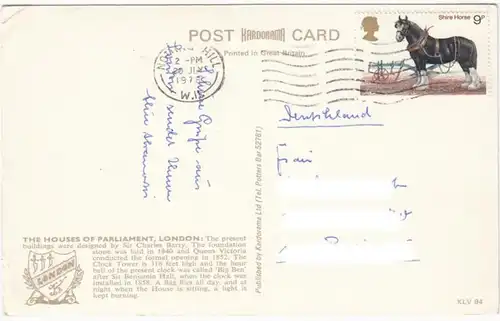 POST KARDORAMA CARD
Printed in Great Britain
Shire Horse 9P
HILL
2 - PM
JLY
197
W.
Deutschland
Frau
Grüße aus
London sendet Ihnen
Published by Kardorama Ltd (Tel. Potters Bar 52781)
THE HOUSES OF PARLIAMENT, LONDON: The present
buildings were designed by Sir Charles Barry. The foundation
stone was laid in 1840 and Queen Victoria
conducted the formal opening in 1852. The
Clock Tower is 316 feet high and the hour
bell of the present clock was called 'Big Ben'
after Sir Benjamin Hall, when the clock was
installed in 1858. A flag flies all day, and at
night when the House is sitting, a light is
kept burning.
LONDON
KLV 84